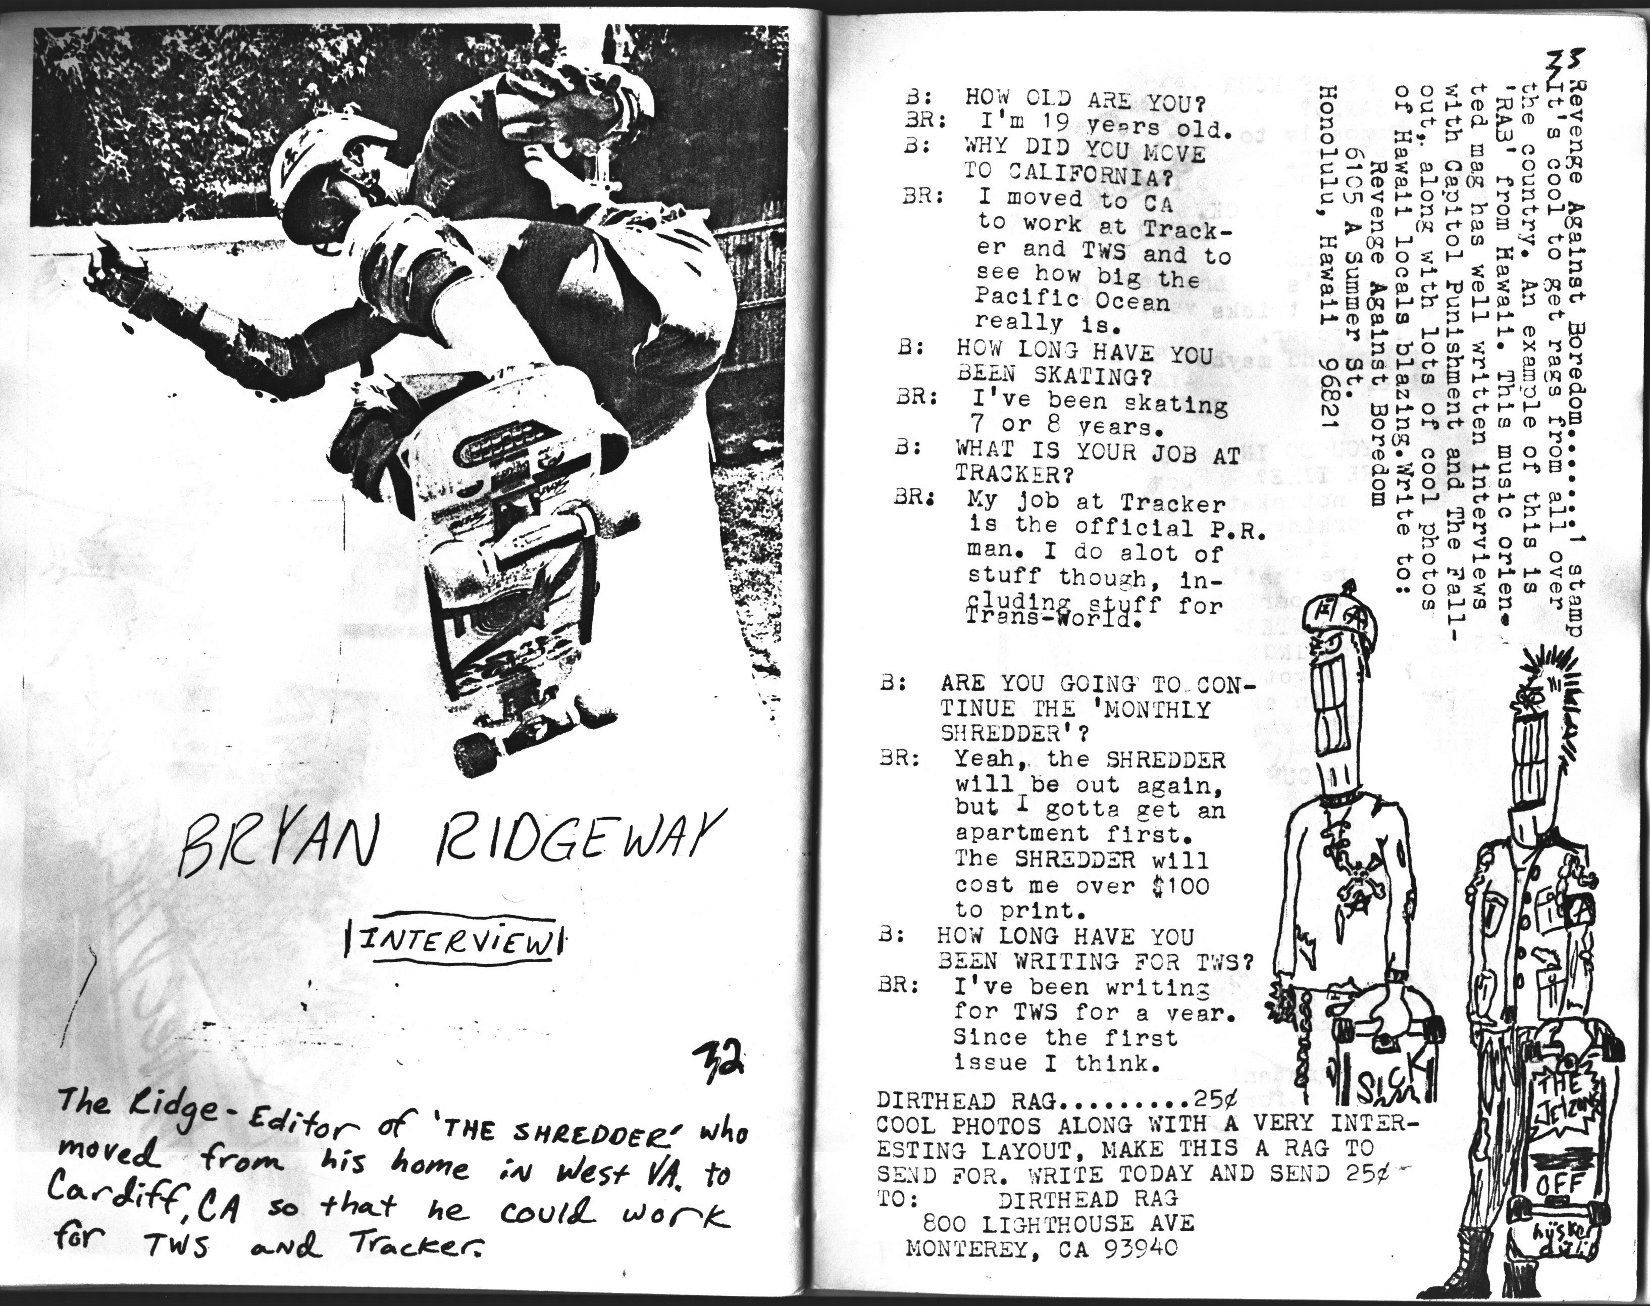 BRYAN RIDGEWAY
INTERVIEW
32
The Ridge-Editor of 'THE SHREDDER' who
moved from his home in West VA. to
Cardiff, CA so that he could work
for TWS and Tracker.
B: HOW OLD ARE YOU?
BR: I'm 19 years old.
B: WHY DID YOU MOVE
TO CALIFORNIA?
BR: I moved to CA
to work at Track-
er and TWS and to
see how big the
Pacific Ocean
really is.
B: HOW LONG HAVE YOU
BEEN SKATING?
BR: I've been skating
7 or 8 years.
B: WHAT IS YOUR JOB AT
TRACKER?
BR: My job at Tracker
is the official P.R.
man. I do alot of
stuff though, in-
cluding stuff for
Trans-World.
B: ARE YOU GOING TO CON-
TINUE THE 'MONTHLY
SHREDDER'?
BR: Yeah, the SHREDDER
will be out again,
but I gotta get an
apartment first.
The SHREDDER will
cost me over $100
to print.
B: HOW LONG HAVE YOU
BEEN WRITING FOR TWS?
BR: I've been writing
for TWS for a year.
Since the first
issue I think.
DIRTHEAD RAG.........25¢
COOL PHOTOS ALONG WITH A VERY INTER-
ESTING LAYOUT, MAKE THIS A RAG TO
SEND FOR. WRITE TODAY AND SEND 25¢
TO: DIRTHEAD RAG
800 LIGHTHOUSE AVE
MONTEREY, CA 93940
Revenge Against Boredom.........1 stamp
It's cool to get rags from all over
the country. An example of this is
'RAB' from Hawaii. This music orien-
ted mag has well written interviews
with Capitol Punishment and The Fall-
out, along with lots of cool photos
of Hawaii locals blazing.Write to:
Revenge Against Boredom
6105 A Summer St.
Honolulu, Hawaii 96821
SICK
THE
OFF
hüsker